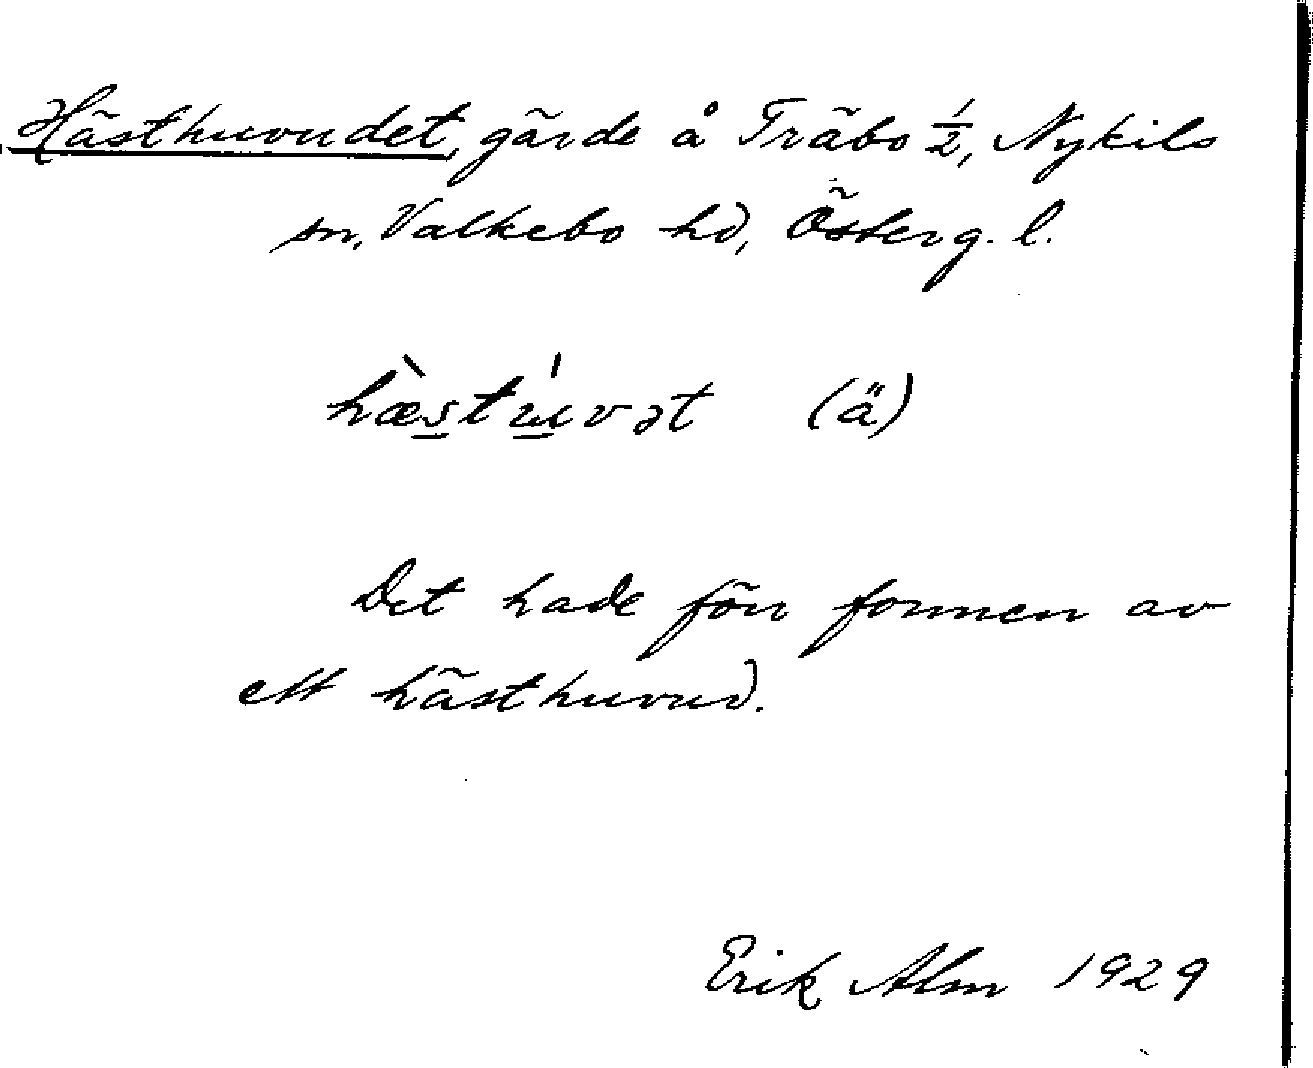 Hästhuvudet, gärde å Träbo ½, Nykils
sn, Valkebo hd, Österg. l.
hæ̀stúvət (ä)
Det hade förr formen av
ett hästhuvud.
Erik Alm 1929